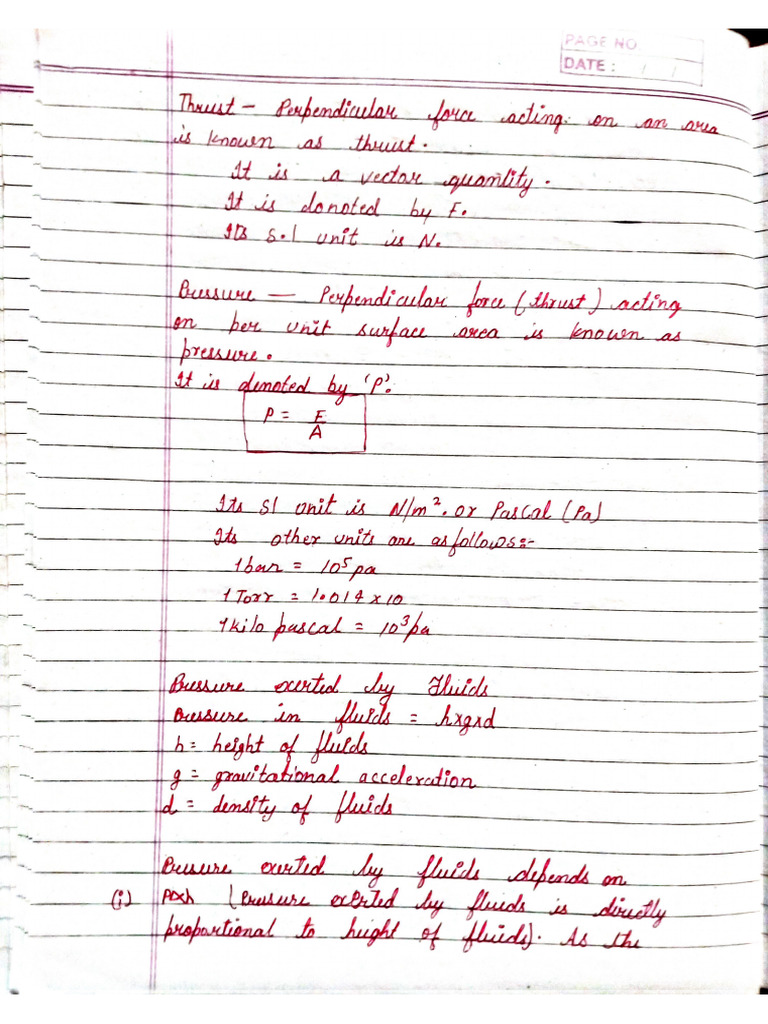 PAGE NO
DATE : / /
Thrust – Perpendicular force acting on an area
is known as thrust.
It is a vector quantity.
It is donoted by F.
Its S.I unit is N.
Pressure — Perpendicular force (thrust) acting
on per unit surface area is known as
pressure.
It is denoted by 'P'.
P = F/A
Its SI unit is N/m². or Pascal (Pa)
Its other units are as follows:-
1 bar = 10⁵ pa
1 Torr = 1.014 × 10
1 kilo pascal = 10³ pa
Pressure exerted by Fluids
Pressure in fluids = h×g×d
h = height of fluids
g = gravitational acceleration
d = density of fluids
Pressure exerted by fluids depends on
(i) P∝h (Pressure exerted by fluids is directly
proportional to height of fluids). As the